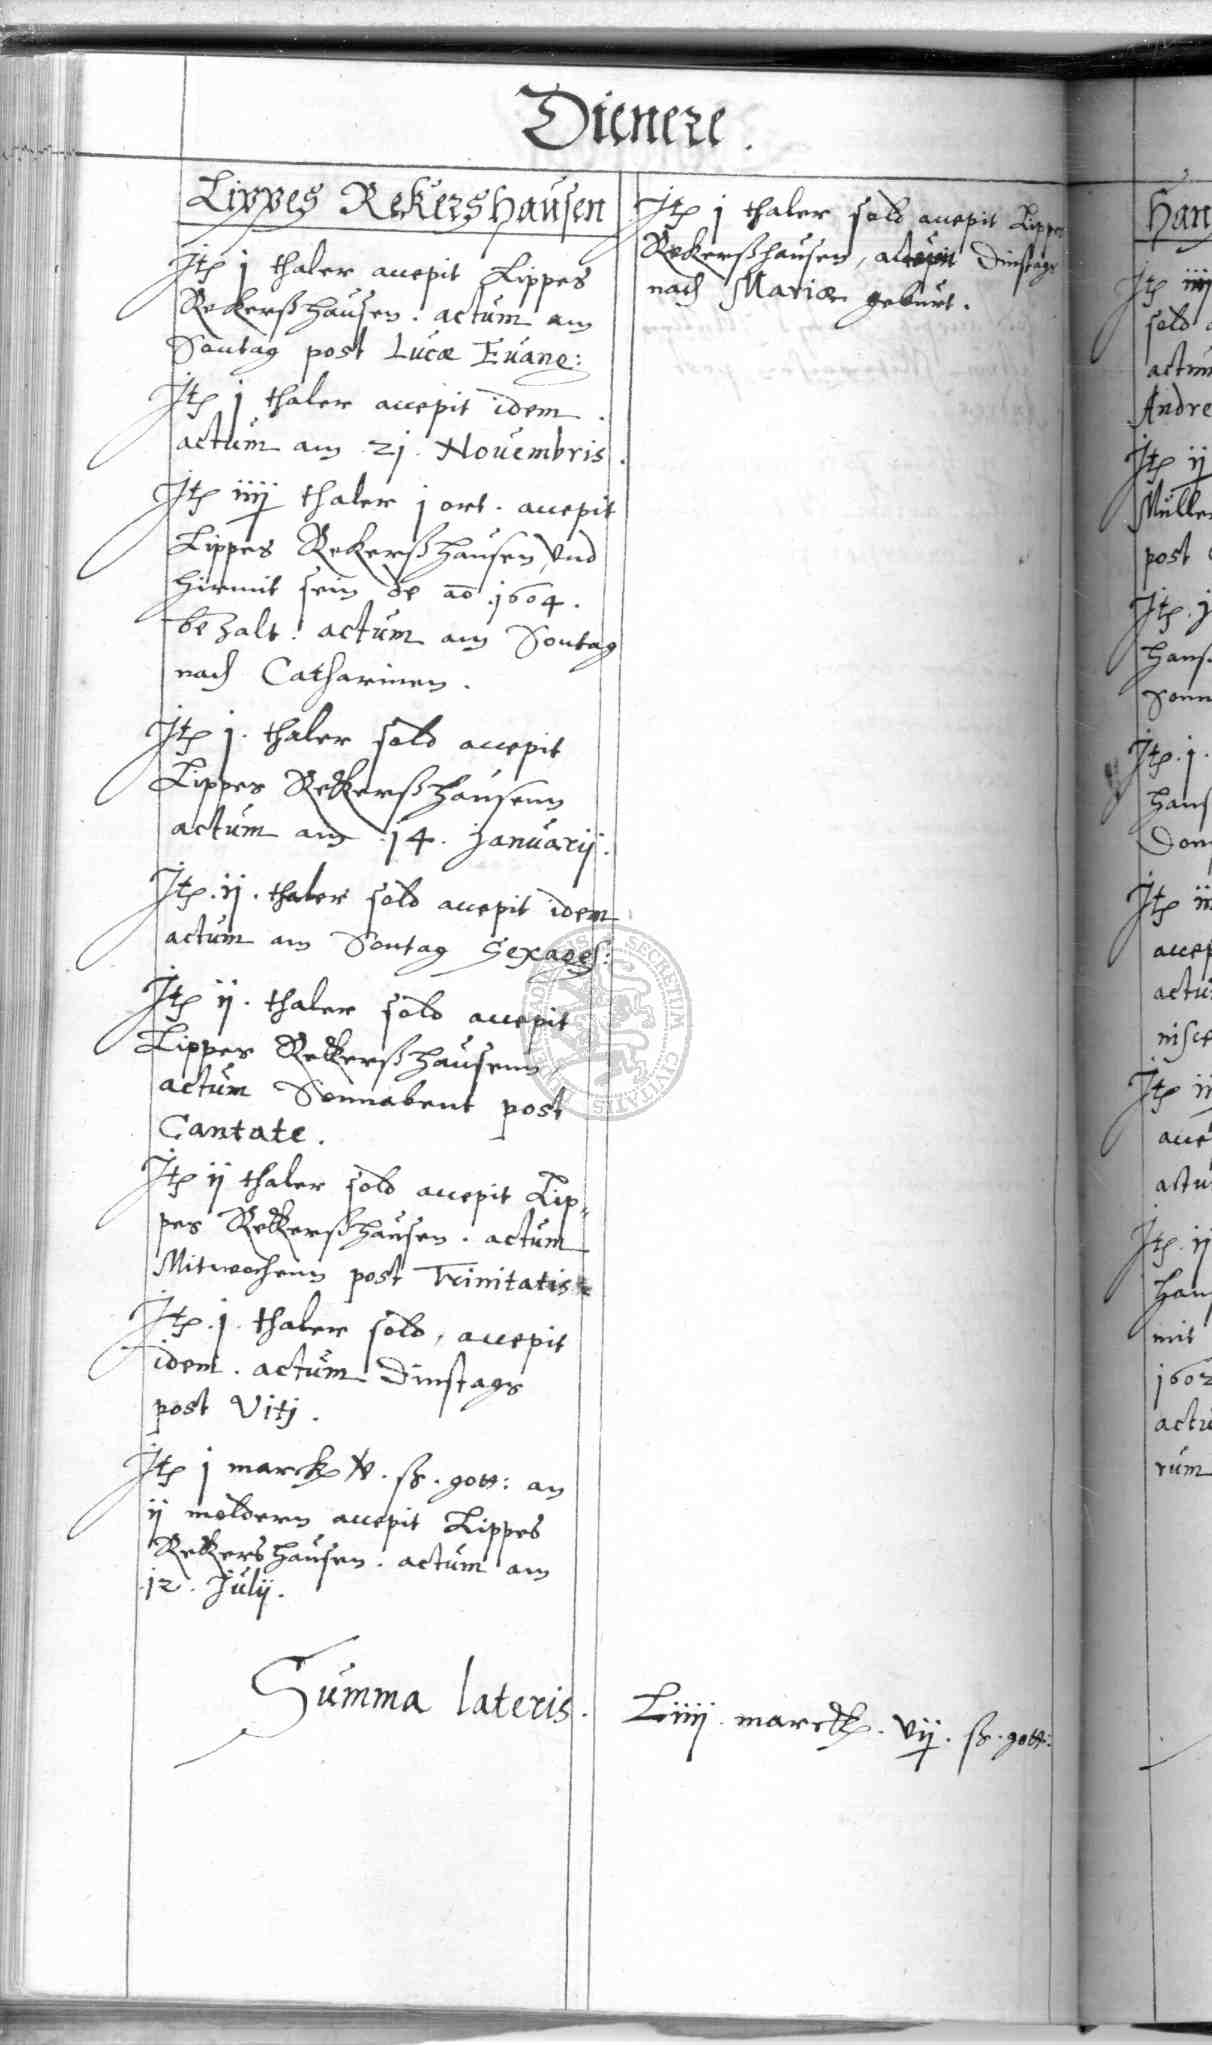 Dienere.
Lippes Rekershausen
Itē j thaler accepit Lippes
Rekerßhausen. actum am
Sontag post Lucæ Euang:
Itē j thaler accepit idem.
actum am 21. Nouembris.
Itē iiij thaler j ort. accepit
Lippes Rekerßhausen, vnd
hirmit sein de aō 1604.
bezalt. actum am Sontag
nach Catharinen.
Itē j. thaler sold accepit
Lippes Rekkerßhausenn
actum am 14. Januarij.
Itē. ij. thaler sold accepit idem
actum am Sontag Sexages:
Itē ij. thaler sold accepit
Lippes Rekkerßhausenn,
actum Sonnabent post
Cantate.
Itē ij thaler sold accepit Lip=
pes Rekkerßhausen. actum
Mitwochenn post Trinitatis
Itē. j. thaler sold, accepit
idem. actum Dinstags
post Viti.
Itē j marck v. ß. gott: an
ij moldern accepit Lippes
Rekkershausen. actum am
12. Julij.
Itē j thaler sold accepit Lippes
Rekerßhausen, Dinstags
nach Mariæ geburt.
Summa lateris. Liiij. marck. vij. ß. gott:
SECRETUM CIVITATIS
Han
Itē iiij
sold
actum
Andre
Itē ij
Müller
post
Itē. j
hans
Sonn
Itē. j.
hans
Itē
accep
actu
nisce
Itē
acce
actu
Itē. ij
hans
mit
1602
actu
rum